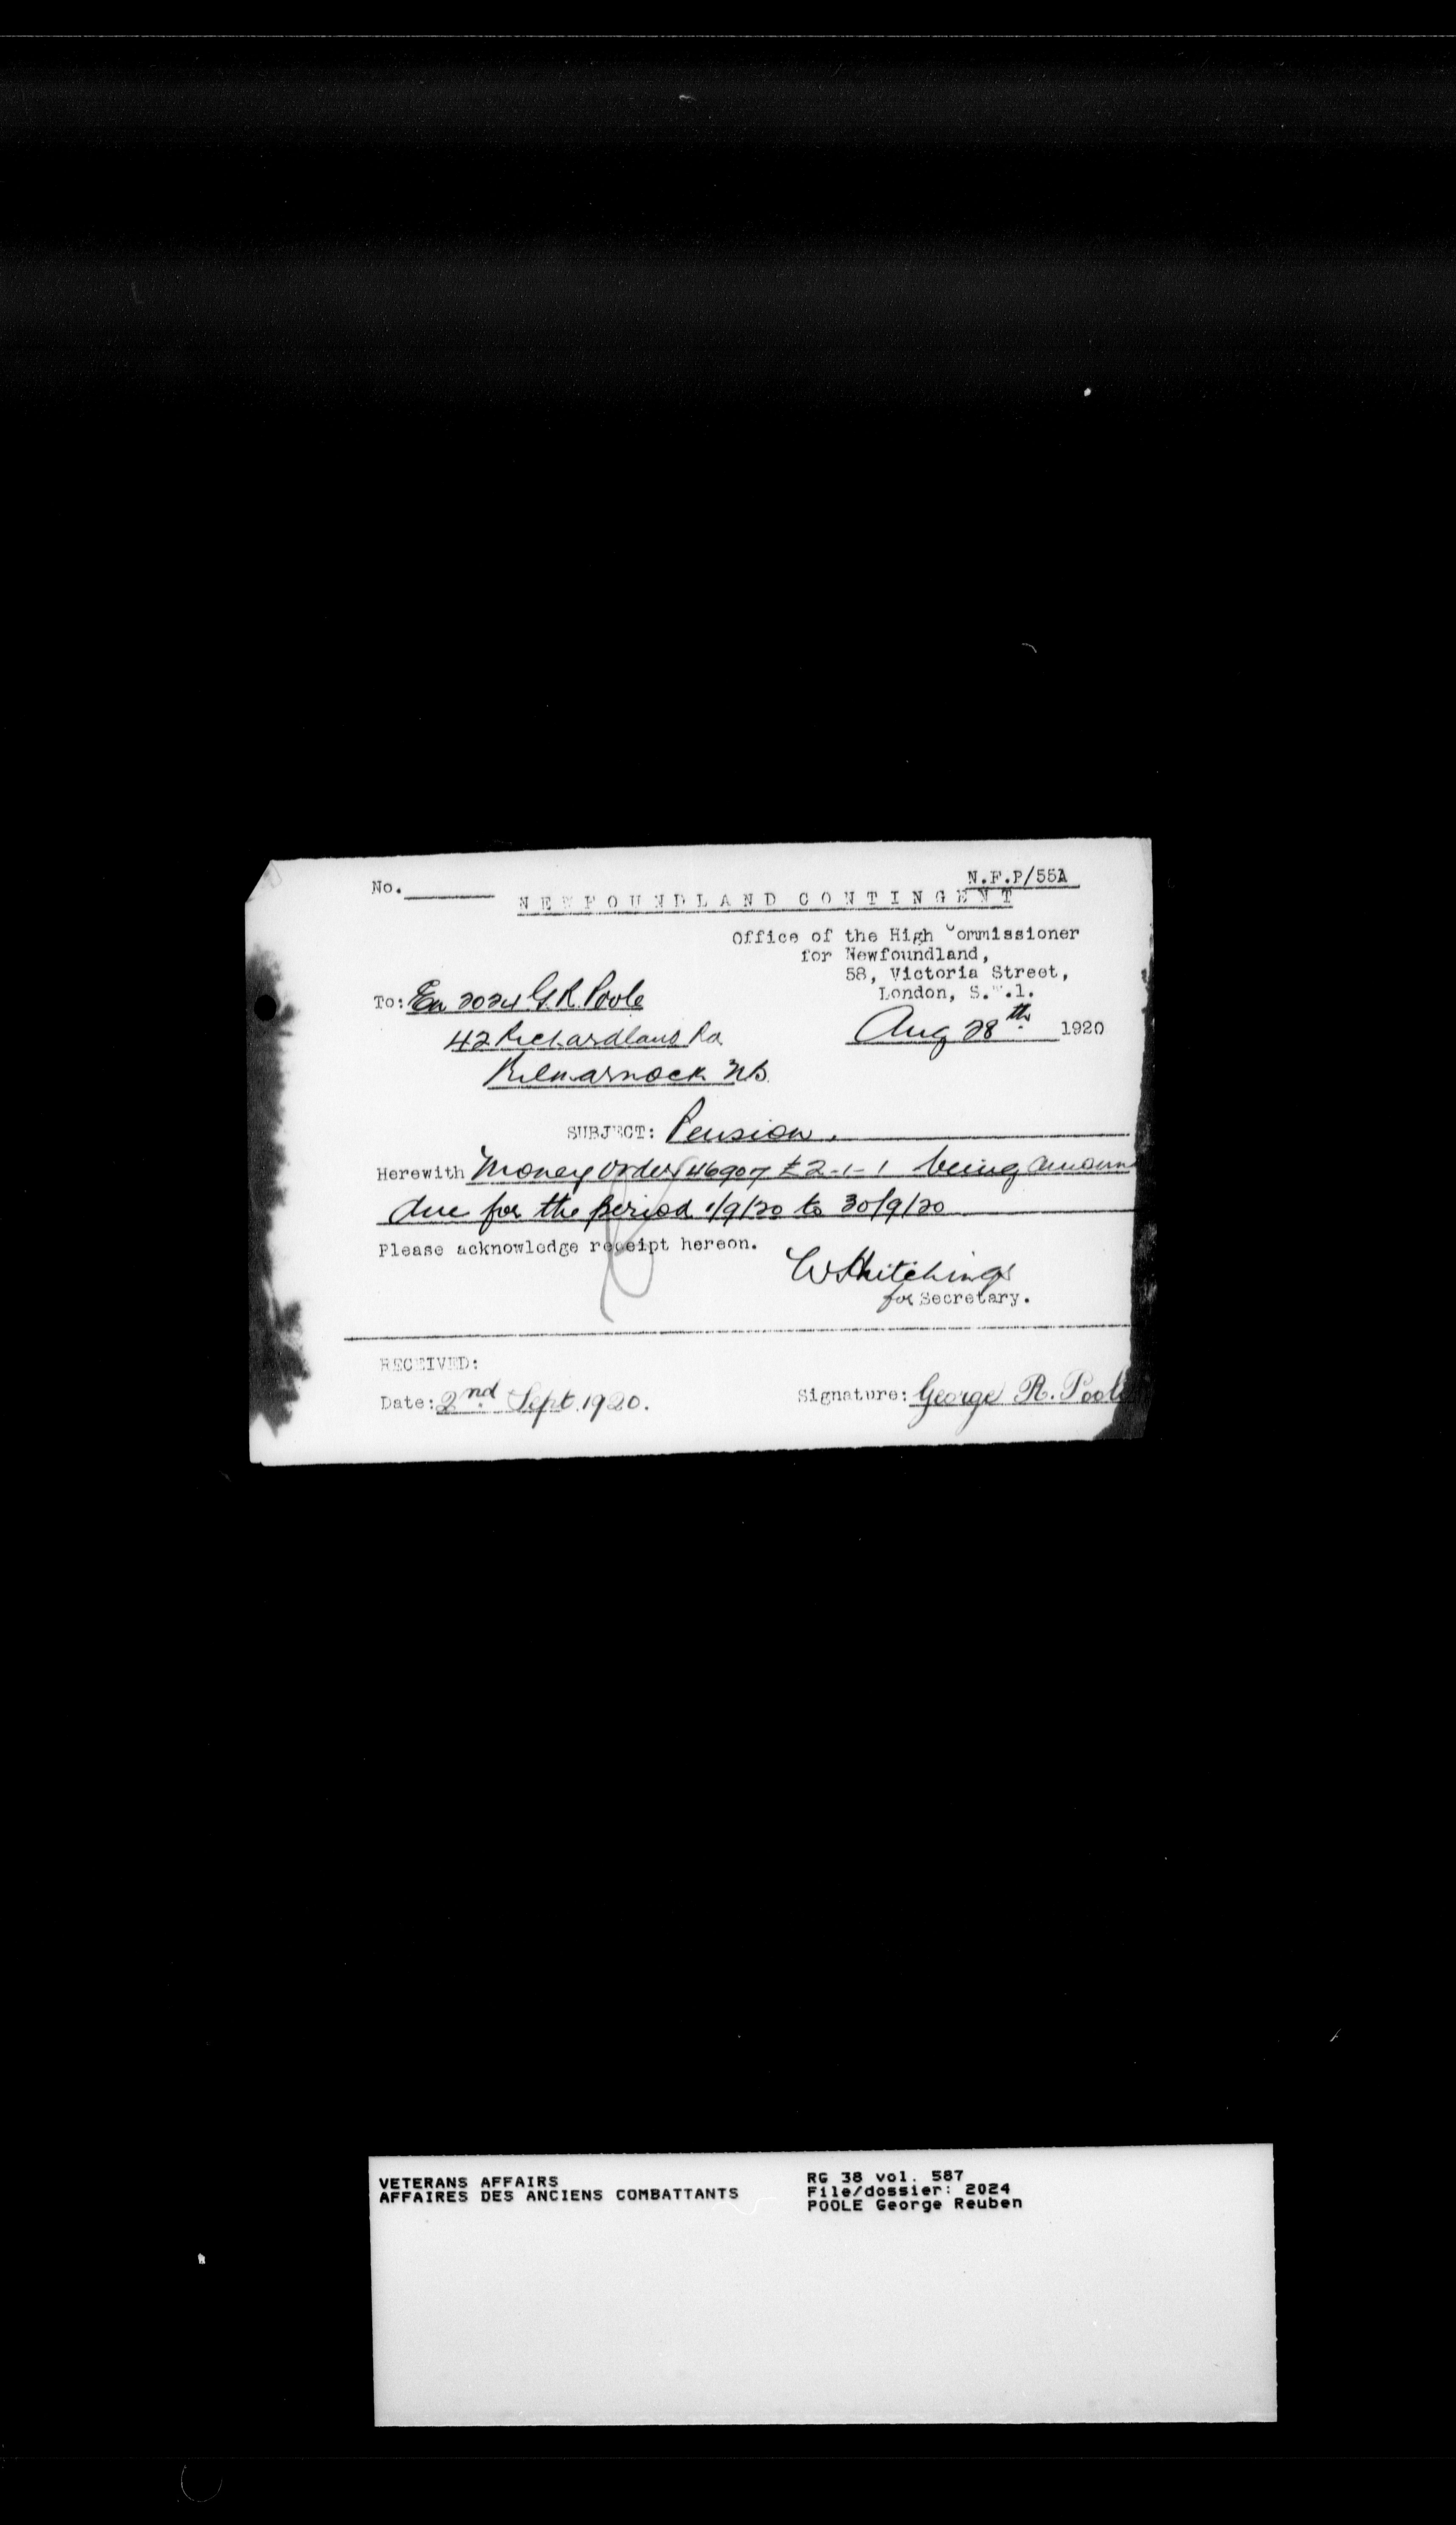 No.
N.F.P/55A
NEWFOUNDLAND CONTINGENT
Office of the High Commissioner
for Newfoundland,
58, Victoria Street,
London, S.W.1.
To: Ex 2024 G.R. Poole
42 Richardland Rd
Aug 28th. 1920
Kilmarnock N.B.
SUBJECT: Pension.
Herewith Money Order 46907 £2-1-1 being amoun
due for the period 1/9/20 to 30/9/20
Please acknowledge receipt hereon.
W Hutchings
for Secretary.
RECEIVED:
Date: 2nd Sept. 1920.
Signature: George R. Poole
VETERANS AFFAIRS
AFFAIRES DES ANCIENS COMBATTANTS
RG 38 vol. 587
File/dossier: 2024
POOLE George Reuben